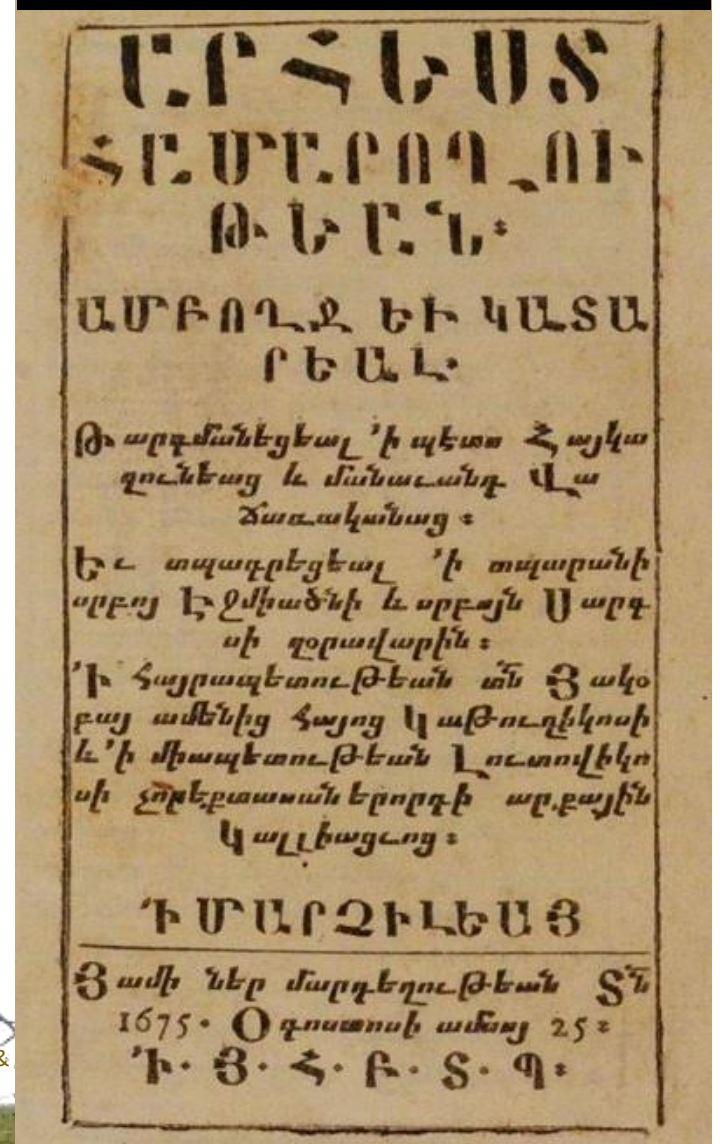 ԱՐՀԵՍՏ
ՀԱՄԱՐՈՂՈՒ
ԹԵԱՆ։
ԱՄԲՈՂՋ ԵՒ ԿԱՏԱ
ՐԵԱԼ·
Թարգմանեցեալ ՚ի պէտս Հայկա
զունեաց և մանաւանդ Վա
ճառականաց։
Եւ տպագրեցեալ ՚ի տպարանի
սրբոյ Էջմիածնի և սրբոյն Սարգ
սի զօրավարին։
՚Ի հայրապետութեան տն Յակօ
բայ ամենից հայոց Կաթուղիկոսի
և ՚ի միապետութեան Լուտովիկո
սի չորեքտասաներորդի արքային
Կալլիացւոց։
Ի ՄԱՐՉԻԼԵԱՅ
Յամի ներ մարդեղութեան Տն
1675· Օգոստոսի ամսոյ 25։
՚Ի· Յ· Հ· Բ· Տ· Պ։
&